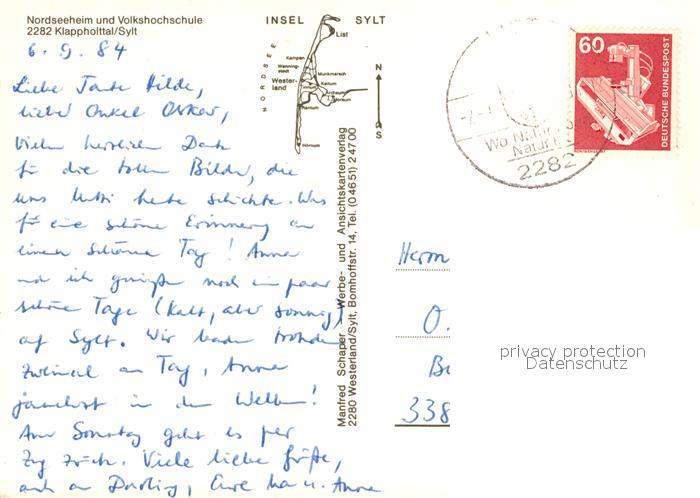 Nordseeheim und Volkshochschule
2282 Klappholttal/Sylt
6. 9. 84
Liebe Tante Hilde,
lieber Onkel Oskar,
Vielen herzlichen Dank
für die tollen Bilder, die
uns Mutti heute schickte. Was
für eine schöne Erinnerung an
einen schönen Tag! Anne
und ich genießen noch ein paar
schöne Tage (kalt, aber sonnig)
auf Sylt. Wir baden trotzdem
zweimal am Tag, Anne
in den Wellen!
Am Sonntag geht es per
Zug zurück. Viele liebe Grüße,
auch an Darling, Eure u. Anne
INSEL SYLT
NORDSEE
List
Kampen
Wenning-
stedt
Wester-
land
Munkmarsch
Keitum
Archsum
Morsum
Rantum
Hörnum
N
S
Manfred Schaper Werbe- und Ansichtskartenverlag
2280 Westerland/Sylt, Bomhoffstr. 14, Tel. (04651) 24700
60
DEUTSCHE BUNDESPOST
Wo Natur
Natur
2282
Herrn
O.
338
privacy protection
Datenschutz